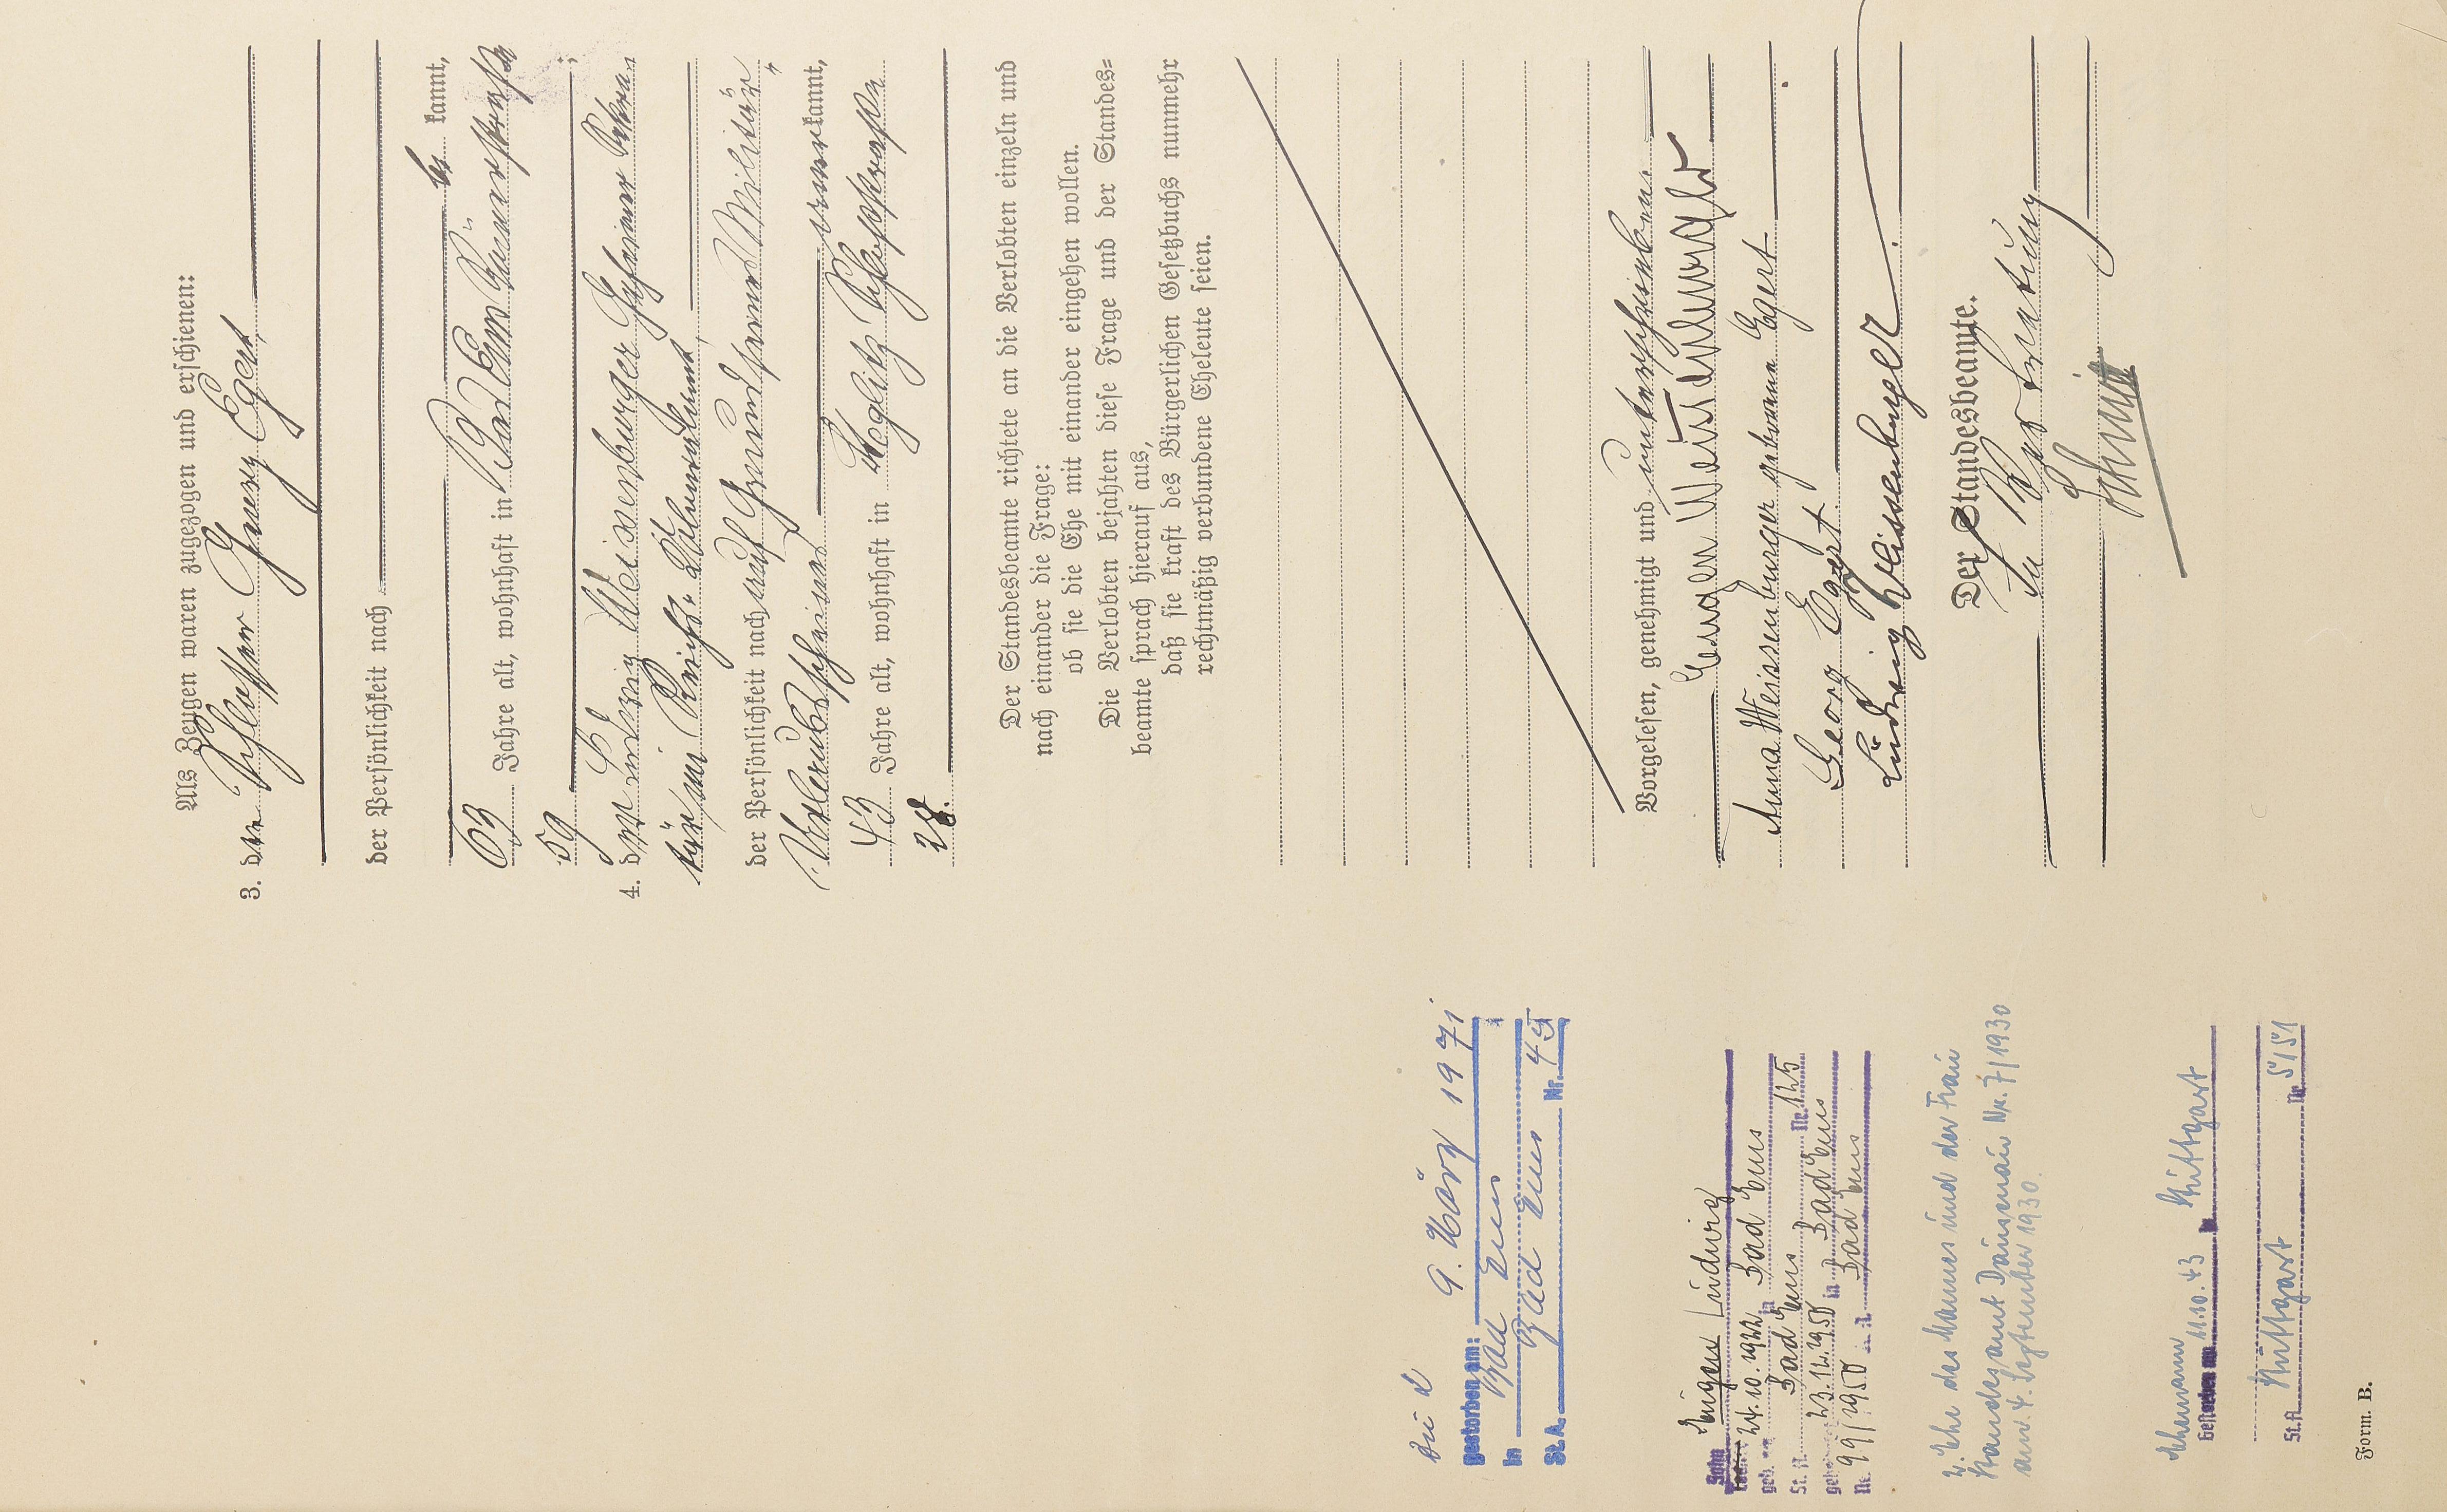 Als Zeugen waren zugezogen und erschienen:
3. der Schlosser Georg Egert
der Persönlichkeit nach
be kannt,
63 Jahre alt, wohnhaft in Bad Ems Römerstraße
59 ;
4. der Ludwig Weissenburger Geheimer Sekre-
tär im Reichs
der Persönlichkeit nach auf Grund seines Militär-
Urlaubsscheines anerkannt,
43 Jahre alt, wohnhaft in Steglitz Schloßstraße
28.
Der Standesbeamte richtete an die Verlobten einzeln und
nach einander die Frage:
ob sie die Ehe mit einander eingehen wollen.
Die Verlobten bejahten diese Frage und der Standes=
beamte sprach hierauf aus,
daß sie kraft des Bürgerlichen Gesetzbuchs nunmehr
rechtmäßig verbundene Eheleute seien.
Vorgelesen, genehmigt und unterschrieben.
Eugen Weissenburger
Anna Weissenburger geborene Egert.
Georg Egert
Ludwig Weissenburger.
Der Standesbeamte.
In Vertretung
Schmitt
gestorben am: 9. März 1971
in Bad Ems
St. A. Bad Ems Nr. 45
Sohn Eugen Ludwig
geb. 24.10.1922 in Bad Ems
St. A. Bad Ems Nr. 125
23.12.1950 in Bad Ems
Nr. 99/1950 Bad Ems
2. Ehe des Mannes und der Frau
Standesamt Dausenau Nr. 7/1930
am 4. September 1930.
Ehemann
Gestorben am 11.10.43 in Stuttgart
St. A. Stuttgart Nr. 5151
Form. B.